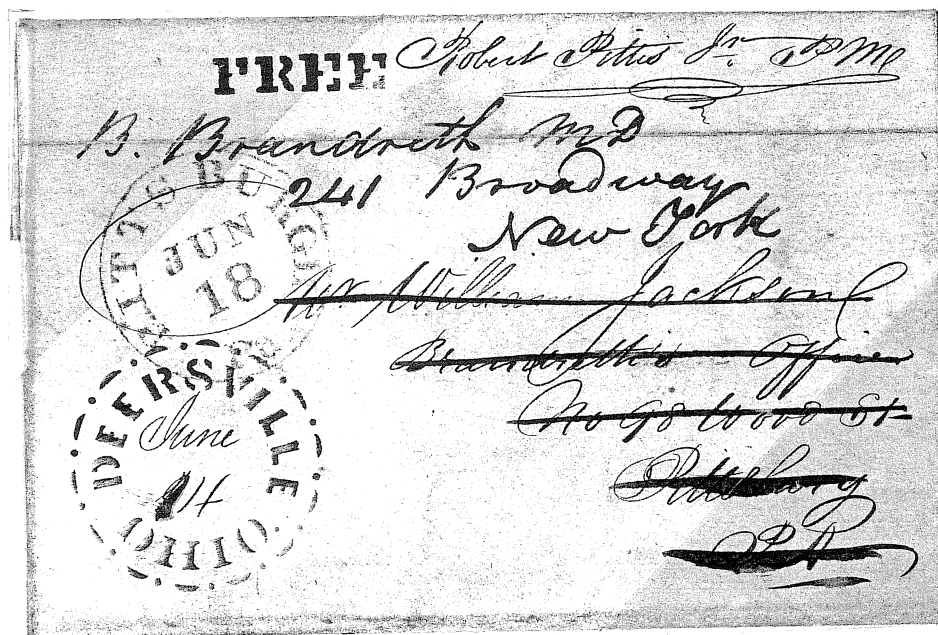 FREE Robert Pittis Jr. PM
B. Brandreth MD
241 Broadway
New York
PITTSBURGH
JUN
18
Mr William Jackson
Brandreth's Office
No 98 Wood St
Pittsburg
PA
DEERSVILLE
June
14
OHIO